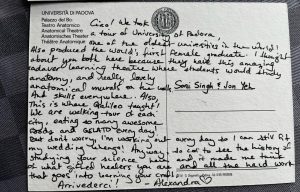 UNIVERSITÀ DI PADOVA
Palazzo del Bo.
Teatro Anatomico
Anatomical Theatre
Anatomisches Theater
Théâtre Anatomique
Ciao! We took
a tour of University of Padova,
one of the oldest universities in the world!
Also produced the world's first female graduate. I thought
about you both here because they had this amazing
cadaver learning theatre where students would study
anatomy, and really lovely
anatomical murals on the walls
and skulls everywhere. Also
This is where Galileo taught!
We are walking tour of each
city, eating so many awesome
foods and GELATO every day
don't worry I'm working out
every day so I can still fit
my wedding
studying your science
to see the history of
what
healers you are
and it made me
and all the hard work
that goes into learning your craft
Arrivederci - Alexandra
Soni Singh & Jon Yeh